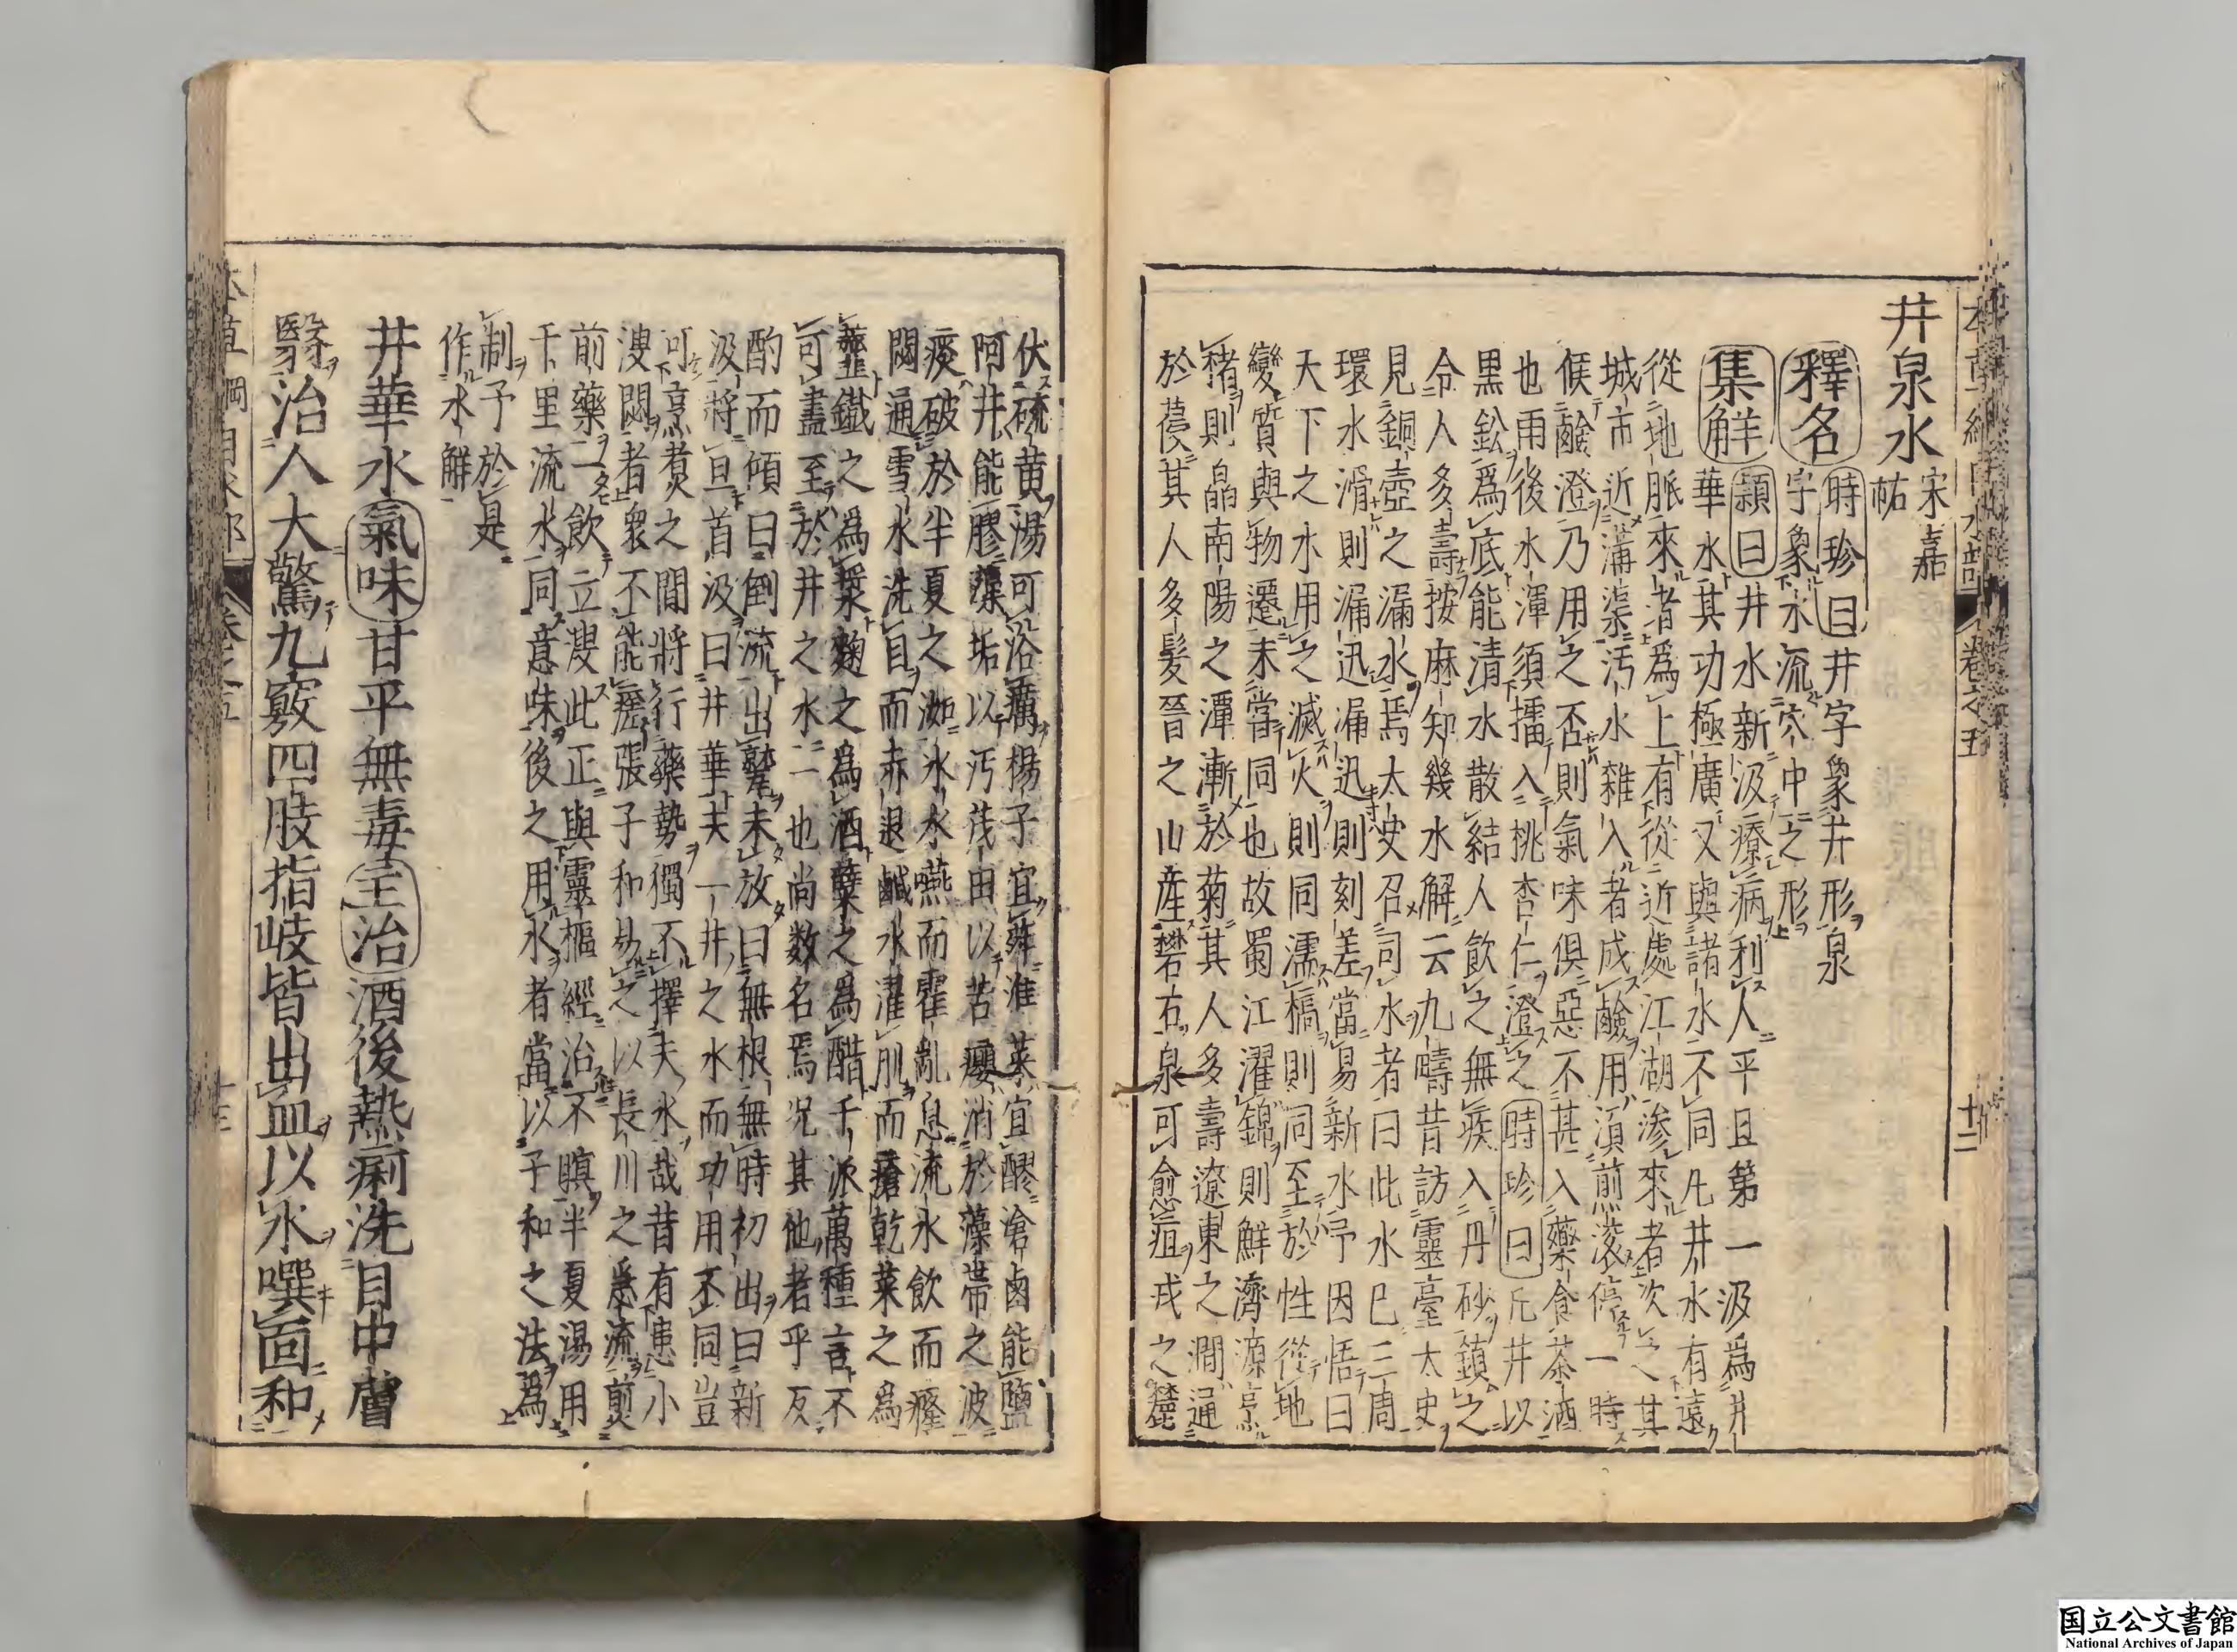 本草綱目水部 卷之五 十二
井泉水 宋嘉祐
釋名 時珍曰井字象井形泉
字象水流穴中之形
集解 頴曰井水新汲療病利人平旦第一汲爲井
華水其功極廣又與諸水不同凡井水有遠
從地脈來者爲上有從近處江湖滲來者次之其
城市近溝渠汚水雜入者成鹼用須煎滾停一時
候鹼澄乃用之否則氣味俱惡不甚入藥食茶酒
也雨後水渾須擂入桃杏仁澄之時珍曰凡井以
黒鉛爲底能清水散結人飲之無疾入丹砂鎮之
令人多壽按麻知幾水解云九疇昔訪靈臺太史
見銅壺之漏水焉太史召司水者曰此水已三周
環水滑則漏迅漏迅則刻差當易新水予因悟曰
天下之水用之滅火則同濡槁則同至於性從地
變質與物遷未嘗同也故蜀江濯錦則鮮濟源烹
楮則皛南陽之潭漸於菊其人多壽遼東之澗通
於葠其人多髮晉之山產礬石泉可愈疽戎之麓
伏硫黄湯可浴癘楊子宜荈淮菜宜醪滄鹵能鹽
阿井能膠澡垢以汚茂田以苦癭消於藻帶之波
痰破於半夏之洳氷水嚥而霍亂息流水飲而癃
閟通雪水洗目而赤退鹹水濯肌而瘡乾菜之爲
虀鐵之爲漿麴之爲酒蘖之爲醋千派萬種言不
可盡至於井之水一也尚数名焉况其他者乎反
酌而傾曰倒流出甃未放曰無根無時初出曰新
汲將旦首汲曰井華夫一井之水而功用不同豈
可烹煮之間將行藥勢獨不擇夫水哉昔有患小
溲閟者衆不能瘥張子和易之以長川之急流煎
前藥一飲立溲此正與靈樞經治不瞑半夏湯用
千里流水同意味後之用水者當以子和之法爲
制予於是
作水解
井華水 氣味 甘平無毒 主治 酒後熱痢洗目中膚
翳治人大驚九竅四肢指岐皆出血以水噀面和
本草綱目水部 卷之五 十三
国立公文書館
National Archives of Japan